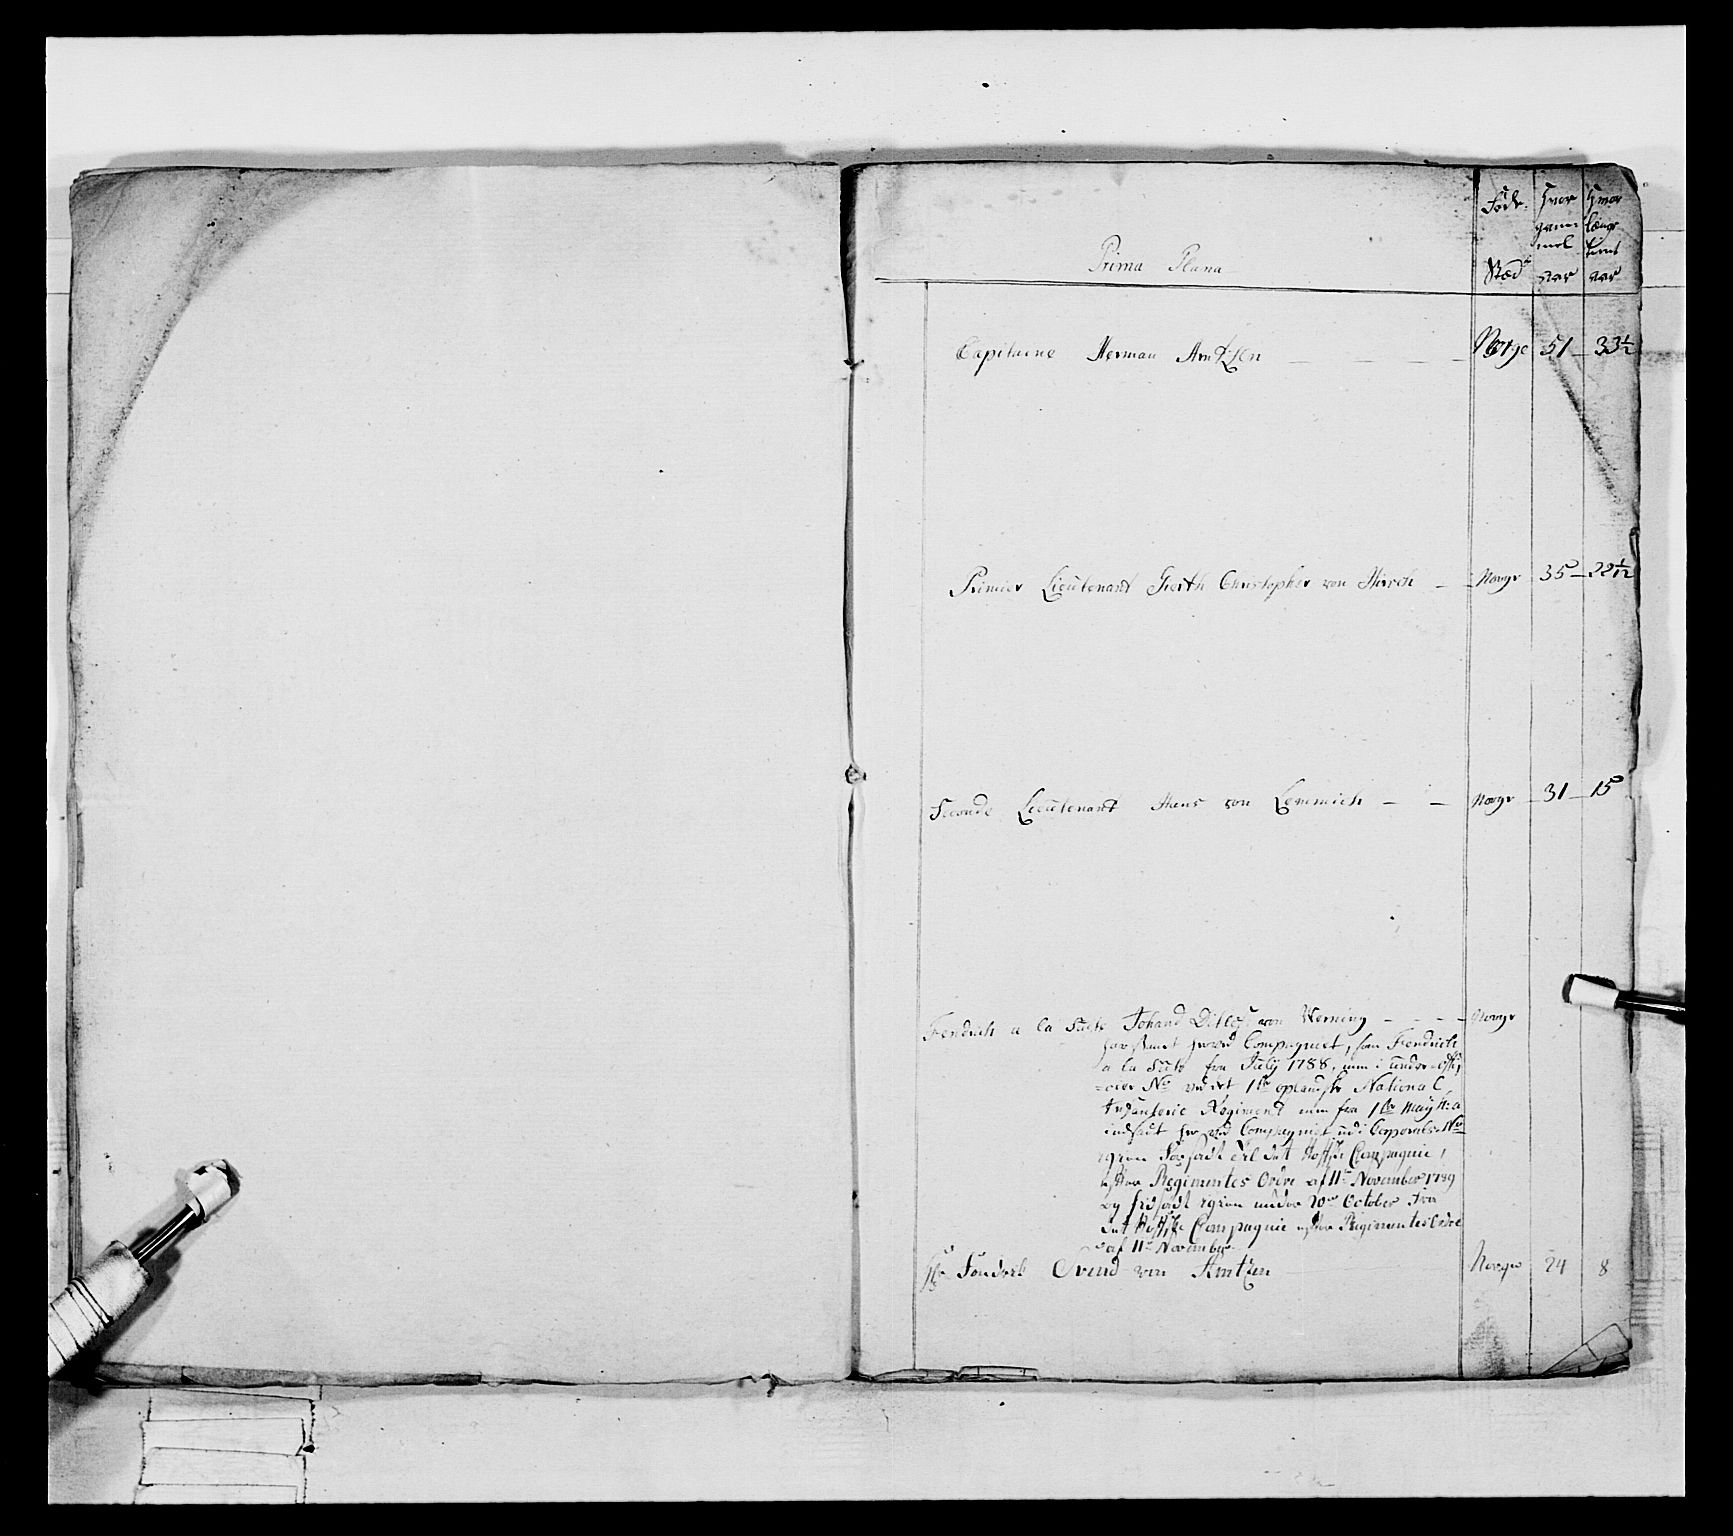 Prima Plana
Føde Stæd
Hvor gammel
Hvor længe tient
Capitaine Herman Arntzen Norge 51 33½
Primier Lieutenant Gerth Christopher von Hirsch Norge 35 22½
Seconde Lieutenant Hans von Lemmich Norge 31 15
Fendrich a la Suite Johand Ditlef von Werning Norge
har staaet her ved Compagniet, som Fendrich
a la Suite fra July 1788, men i under-offi,
=ceer No ved det 1te oplandske National
Infanterie Regiment men fra 1te May
indsadt her ved Compagniet udi Corporals No
igien forsadt til det Compagnie,
efter Regimentes Ordre af 11te November 1789
og indsadt igien under 20de October fra
det Compagnie efter Regimentes Ordre
af 11te November
Fendrik Svend von Arntzen Norge 24 8